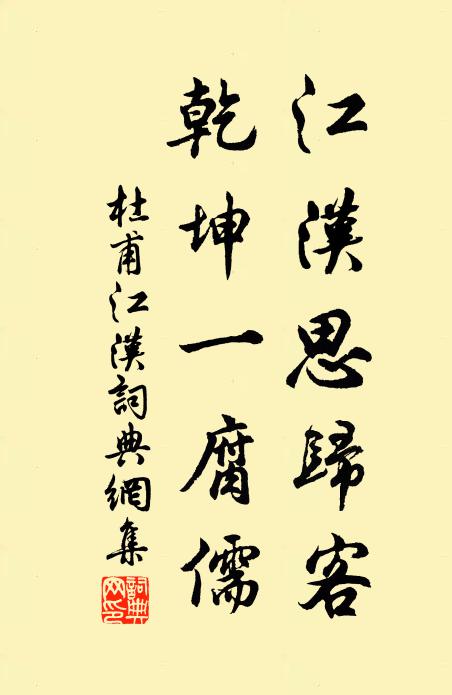 江漢思歸客
乾坤一腐儒
杜甫江漢詞典網集
詞典
网印